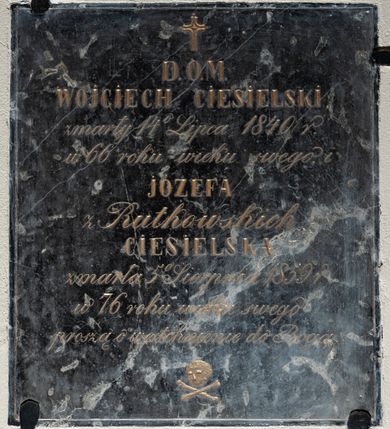 D.O.M
WOJCIECH CIESIELSKI
zmarły 14º Lipca 1840 r.
w 66 roku wieku swego i
JÓZEFA
z Rutkowskich
CIESIELSKA
zmarła 5º Sierpnia 1859 r.
w 76 roku wieku swego
proszą o westchnienie do Boga.